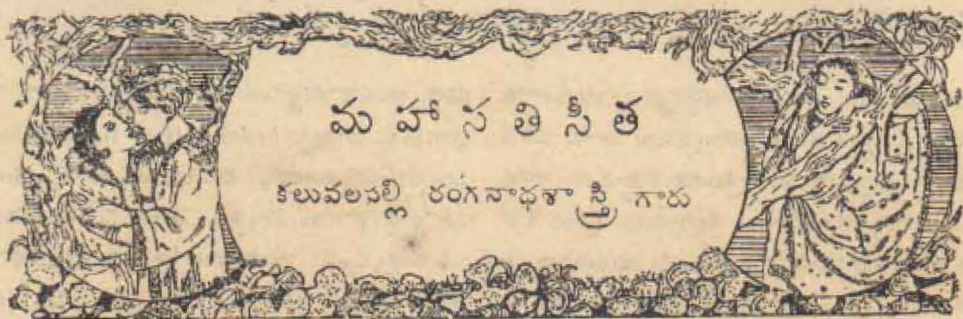 మహాసతి సీత
కలువలపల్లి రంగనాధశాస్త్రి గారు